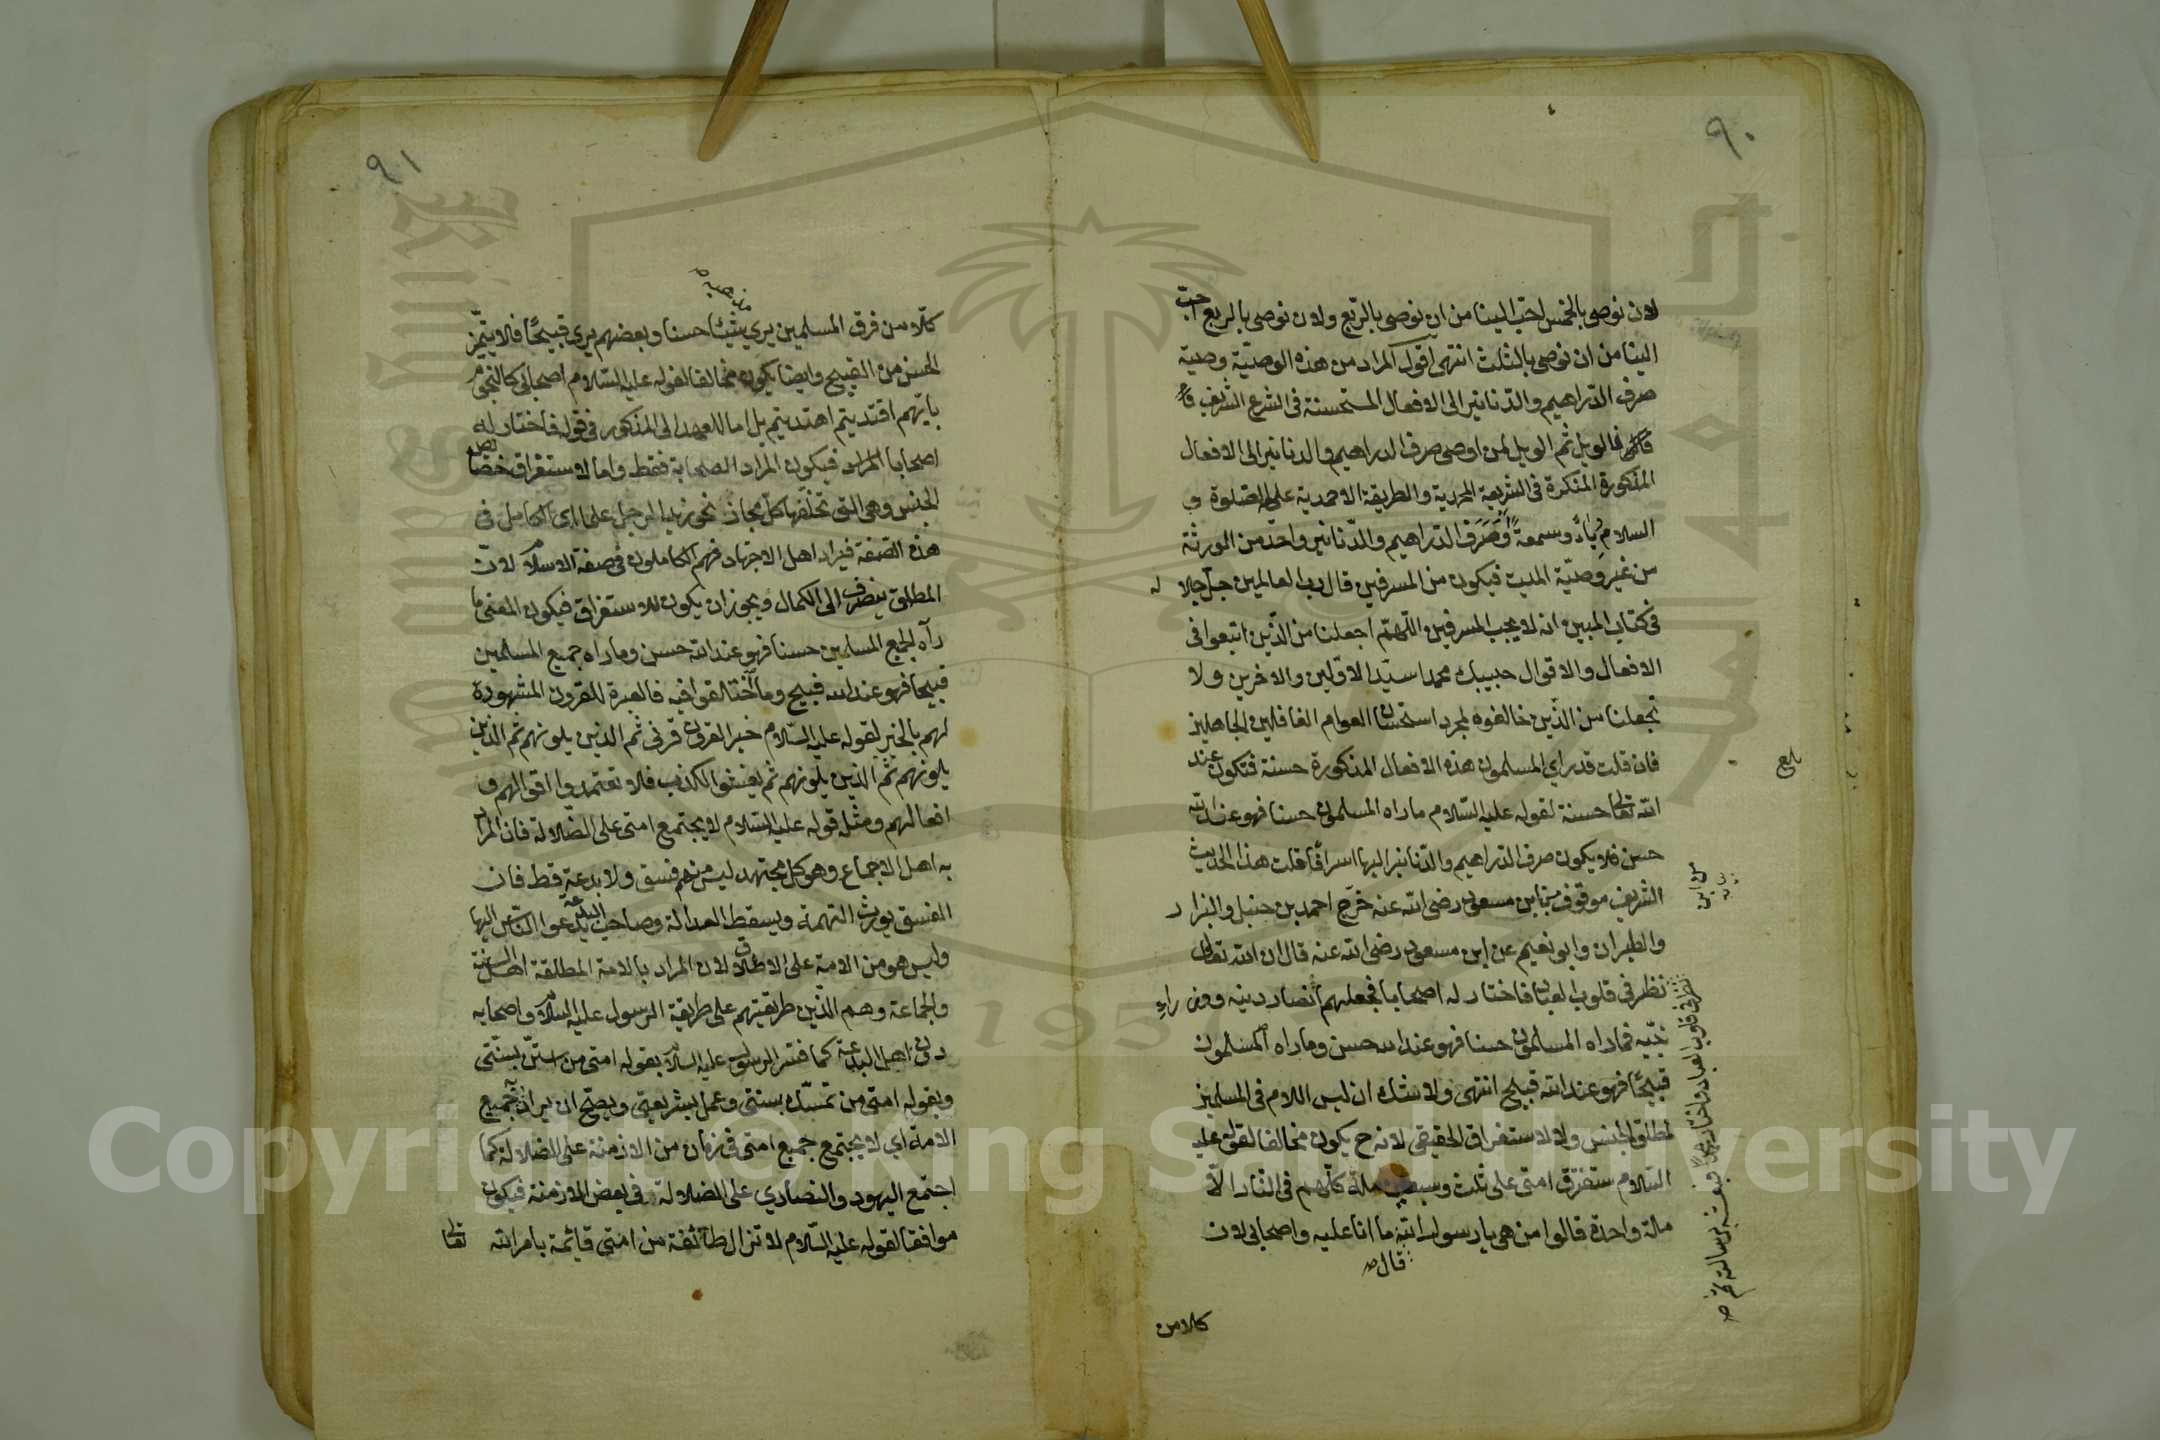 ٩٠
لان نوصي بالخمس احبّ الينا من ان نوصي بالربع ولان نوصي بالربع احبّ
الينا من ان نوصي بالثلث انتهى اقول المراد من هذه الوصيّة وصية
صرف الدّراهيم والدّنانير الى الافعال المستحسنة في الشرع الشريف
فالويل ثم الويل لمن اوصى صرف الدراهيم والدنانير الى الافعال
المذكورة المنكرة في الشريعة المحمدية والطريقة الاحمدية على الصلوة و
السلام رياءً وسمعةً او صَرَفَ الدّراهيم والدّنانير واحدٌ من الورثة
من غير وصيّة الميت فيكون من المسرفين قال رب العالمين جلّ جلاله
في كتاب المبين انه لا يحب المسرفين اللهمّ اجعلنا من الذّين اتبعوا في
الافعال والاقوال حبيبك محمدا سيّد الاوّلين والاخرين ولا
تجعلنا من الذّين خالفوه لمجرد استحسان العوام الغافلين الجاهلين
فان قلت قد راي المسلمون هذه الافعال المذكورة حسنة فتكون عند
الله تعالى حسنة لقوله عليه السّلام ماراه المسلمون حسنا فهو عند الله
حسن فلا يكون صرف الدّراهيم والدّنانير اليها اسرافًا قلت هذا الحديث
الشريف موقوف بابن مسعود رضى الله عنه خرّج احمد بن حنبل والبزار
والطبران وابو نعيم عن ابن مسعود رضى الله عنه قال ان الله تعالى
نظر في قلوب العباد فاختار له اصحابا فجعلهم انصار دينه ووزراء
نبيّه فماراه المسلمون حسنا فهو عند الله حسن وماراه المسلمون
قبيحًا فهو عند الله قبيح انتهى ولا شك ان ليس اللام في المسلمين
لمطلق الجنس ولا لاستغراق الحقيقي لانه ح يكون مخالفا لقوله عليه
السّلام ستفترق امتى على ثلث وسبعين ملة كلّهم في النار الاّ
ملة واحدة قالوا من هي يا رسول الله ما انا عليه واصحابي لان
قال صح
كلا من
بلغ
٩١
كلّا من فرق المسلمين يري شيئا حسنا وبعضهم يرى قبيحًا فلا يتميّز
الحسن من القبيح وايضا يكون مخالفا لقوله عليه السّلام اصحابي كالنجوم
بايّهم اقتديتم اهتديتم بل اما للعهد الى المذكور في قوله فاختار له
اصحابا المراد فيكون المراد الصحابة فقط واما لاستغراق خصائص
الجنس وهى التى تخلّفها كلّ مجاز نحو زيد الرجل علما اى الكامل في
هذه الصّفة فيراد اهل الاجتهاد فهم الكاملون في صفة الاسلام لانّ
المطلق ينصرف الى الكمال ويجوز ان يكون للاستغراق فيكون المعنى ما
رآه لجميع المسلمين حسنا فهو عند الله حسن وماراه جميع المسلمين
قبيحا فهو عند الله قبيح وما اختالفوا فيه فالعبرة للقرون المشهودة
لهم بالخير لقوله عليه السّلام خير القرون قرنى ثم الذين يلونهم ثم الذين
يلونهم ثم الذين يلونهم ثم يفشوا الكذب فلا تعتمدوا اقوالهم و
افعالهم ومثله قوله عليه السّلام لا يجتمع امتى على الضّلالة فان المراد
به اهل الاجماع وهو كل مجتهد ليس منهم فسق ولا بدعة قط فان
الفسق يورث التهمة ويسقط العدالة وصاحب البدعة يدعوا النّاس اليها
وليس هو من الامة على الاطلاق لان المراد بالامة المطلقة اهل السنة
والجماعة وهم الذّين طريقتهم على طريقة الرسول عليه السلام واصحابه
دون اهل البدعة كما فسّر الرسول عليه السلام بقوله امتى من استنّ بسنّتى
وبقوله امتى من تمسّك بسنتى وعمل بشريعتى ويصّح ان يراد به جميع
الامة اي لا يجتمع جميع امتى في زمان من الازمنة على الضلالة كما
اجتمع اليهود والنصاري على الضلالة في بعض الازمنة فيكون
موافقا لقوله عليه السّلام لا تزال طائفة من امتى قائمة بامر الله تعالى
Copyright © King Saud University